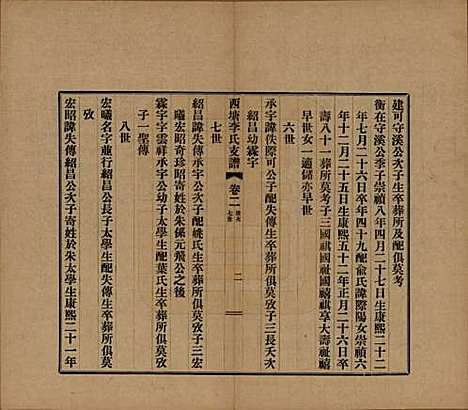 建可守溪公次子生卒葬所及配俱莫考
衡在守溪公季子崇禎八年四月二十七日生康熙二十二
年七月二十六日卒年四十九配俞氏諱際陽女崇禎六
年十二月二十五日生康熙五十二年正月二十六日卒
壽八十一葬所莫考子三國祺國祉國禧祺享大壽祉禧
早世女一適儲亦早世
六世
承字諱佚際可公子失傳生卒葬所俱莫攷子三長天次
紹昌幼霖字
西塘李氏支譜
卷二
七世
二
七世
紹昌諱失傳承字公次子配姚氏生卒葬所俱莫攷子三宏
曦宏昭奇珍昭寄姓於朱係元飛公之後
霖字字雲祥承字公幼子太學生配葉氏生卒葬所俱莫攷
子一聖傳
八世
宏曦名字並行紹昌公長子太學生配失傳生卒葬所俱莫
攷
宏昭諱失傳紹昌公次子寄姓於朱太學生康熙二十一年